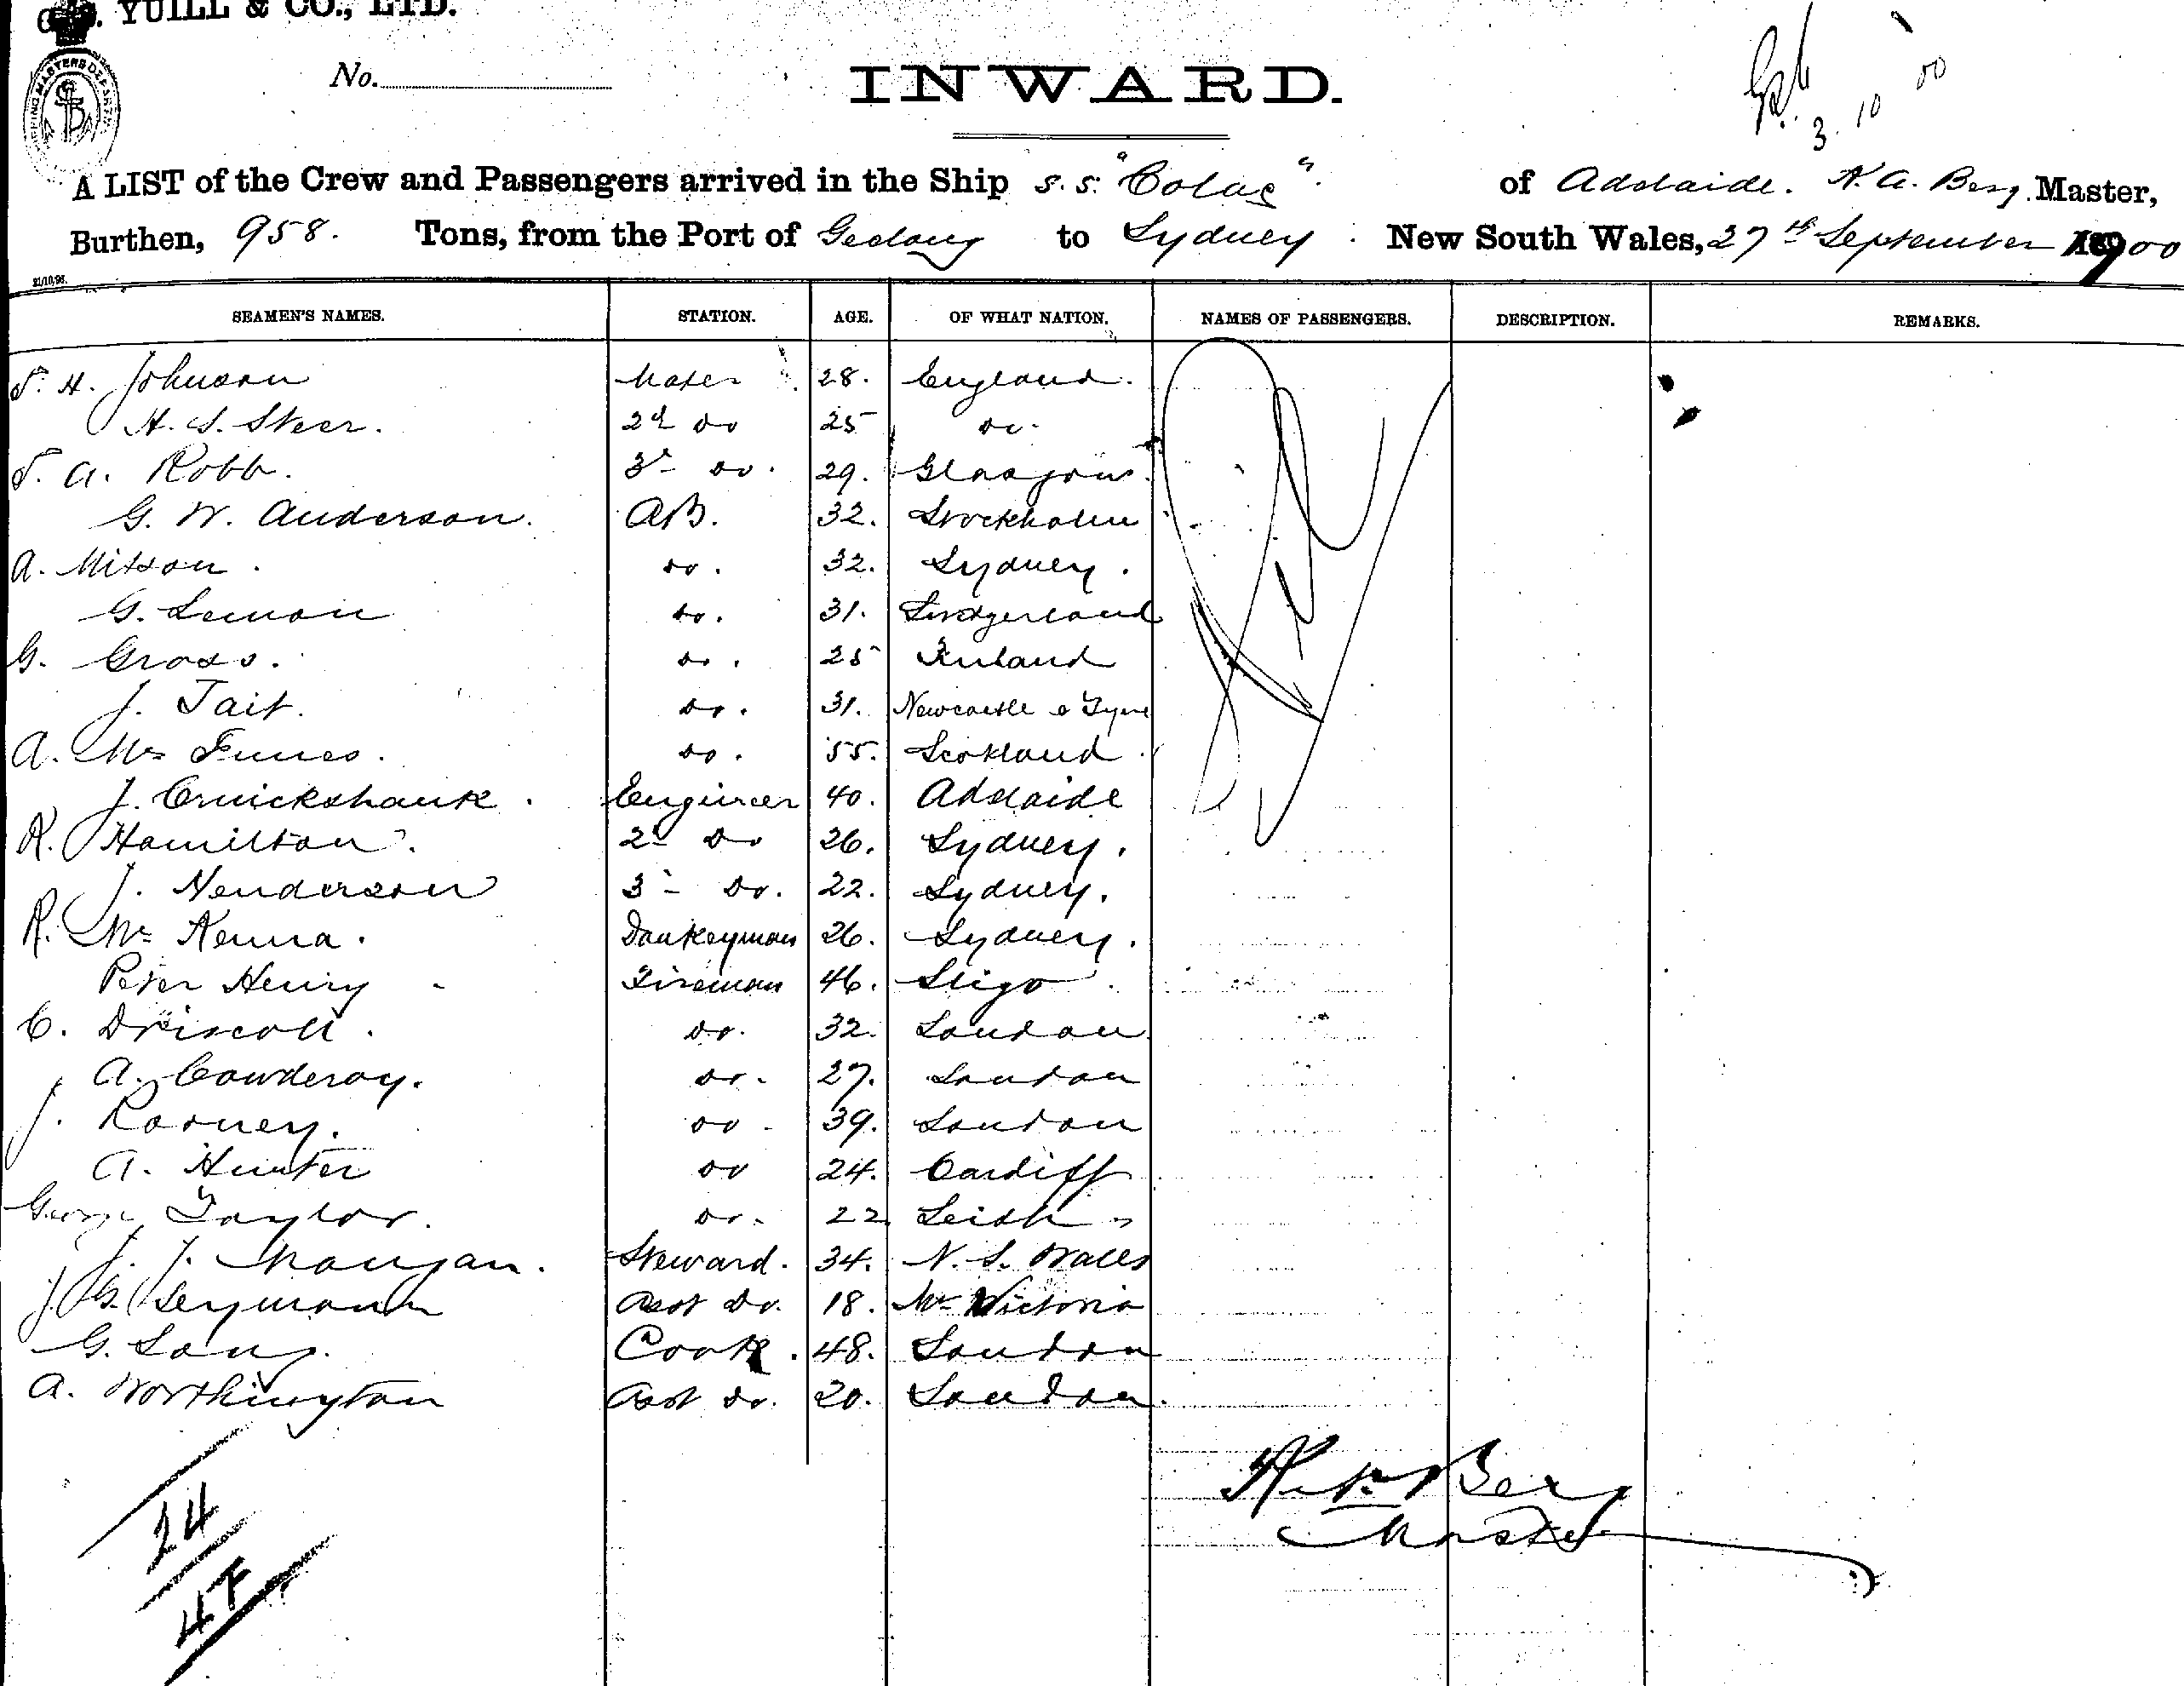 YUILL & CO., LTD.
No.
INWARD.
3. 10 00
A LIST of the Crew and Passengers arrived in the Ship s.s. "Colac". of Adelaide. N. A. Berg. Master,
Burthen, 958. Tons, from the Port of Geelong to Sydney. New South Wales, 27th September 1900
21/10/96.
SEAMEN'S NAMES. STATION. AGE. OF WHAT NATION. NAMES OF PASSENGERS. DESCRIPTION. REMARKS.
T. H. Johnson Mate 28. England.
H. S. Steer. 2d do 25 do.
T. A. Robb. 3d do. 29. Glasgow.
G. W. Anderson. AB. 32. Stockholm
A. Mitson. do. 32. Sydney.
G. Lemon do. 31. Switzerland
G. Gross. do. 25 Finland
J. Tait. do. 31. Newcastle o Tyne
A. Mc Innes. do. 55. Scotland.
J. Cruickshank. Engineer 40. Adelaide
R. Hamilton. 2d Do 26. Sydney.
J. Henderson 3d Do. 22. Sydney.
R. Mc Kenna. Donkeyman 26. Sydney.
Peter Henry - Fireman 46. Sligo.
C. Driscoll. do. 32. London
A. Cowderoy. do. 27. London
J. Rooney. do. 39. London
A. Hunter do 24. Cardiff
George Taylor. do. 22 Leith
J. J. Mangan. Steward. 34. N. S. Wales
J. G. Seymour Asst Do. 18. Mt Victoria
G. Long. Cook. 48. London
A. Worthington Asst do. 20. London.
Berg
Master
24
47